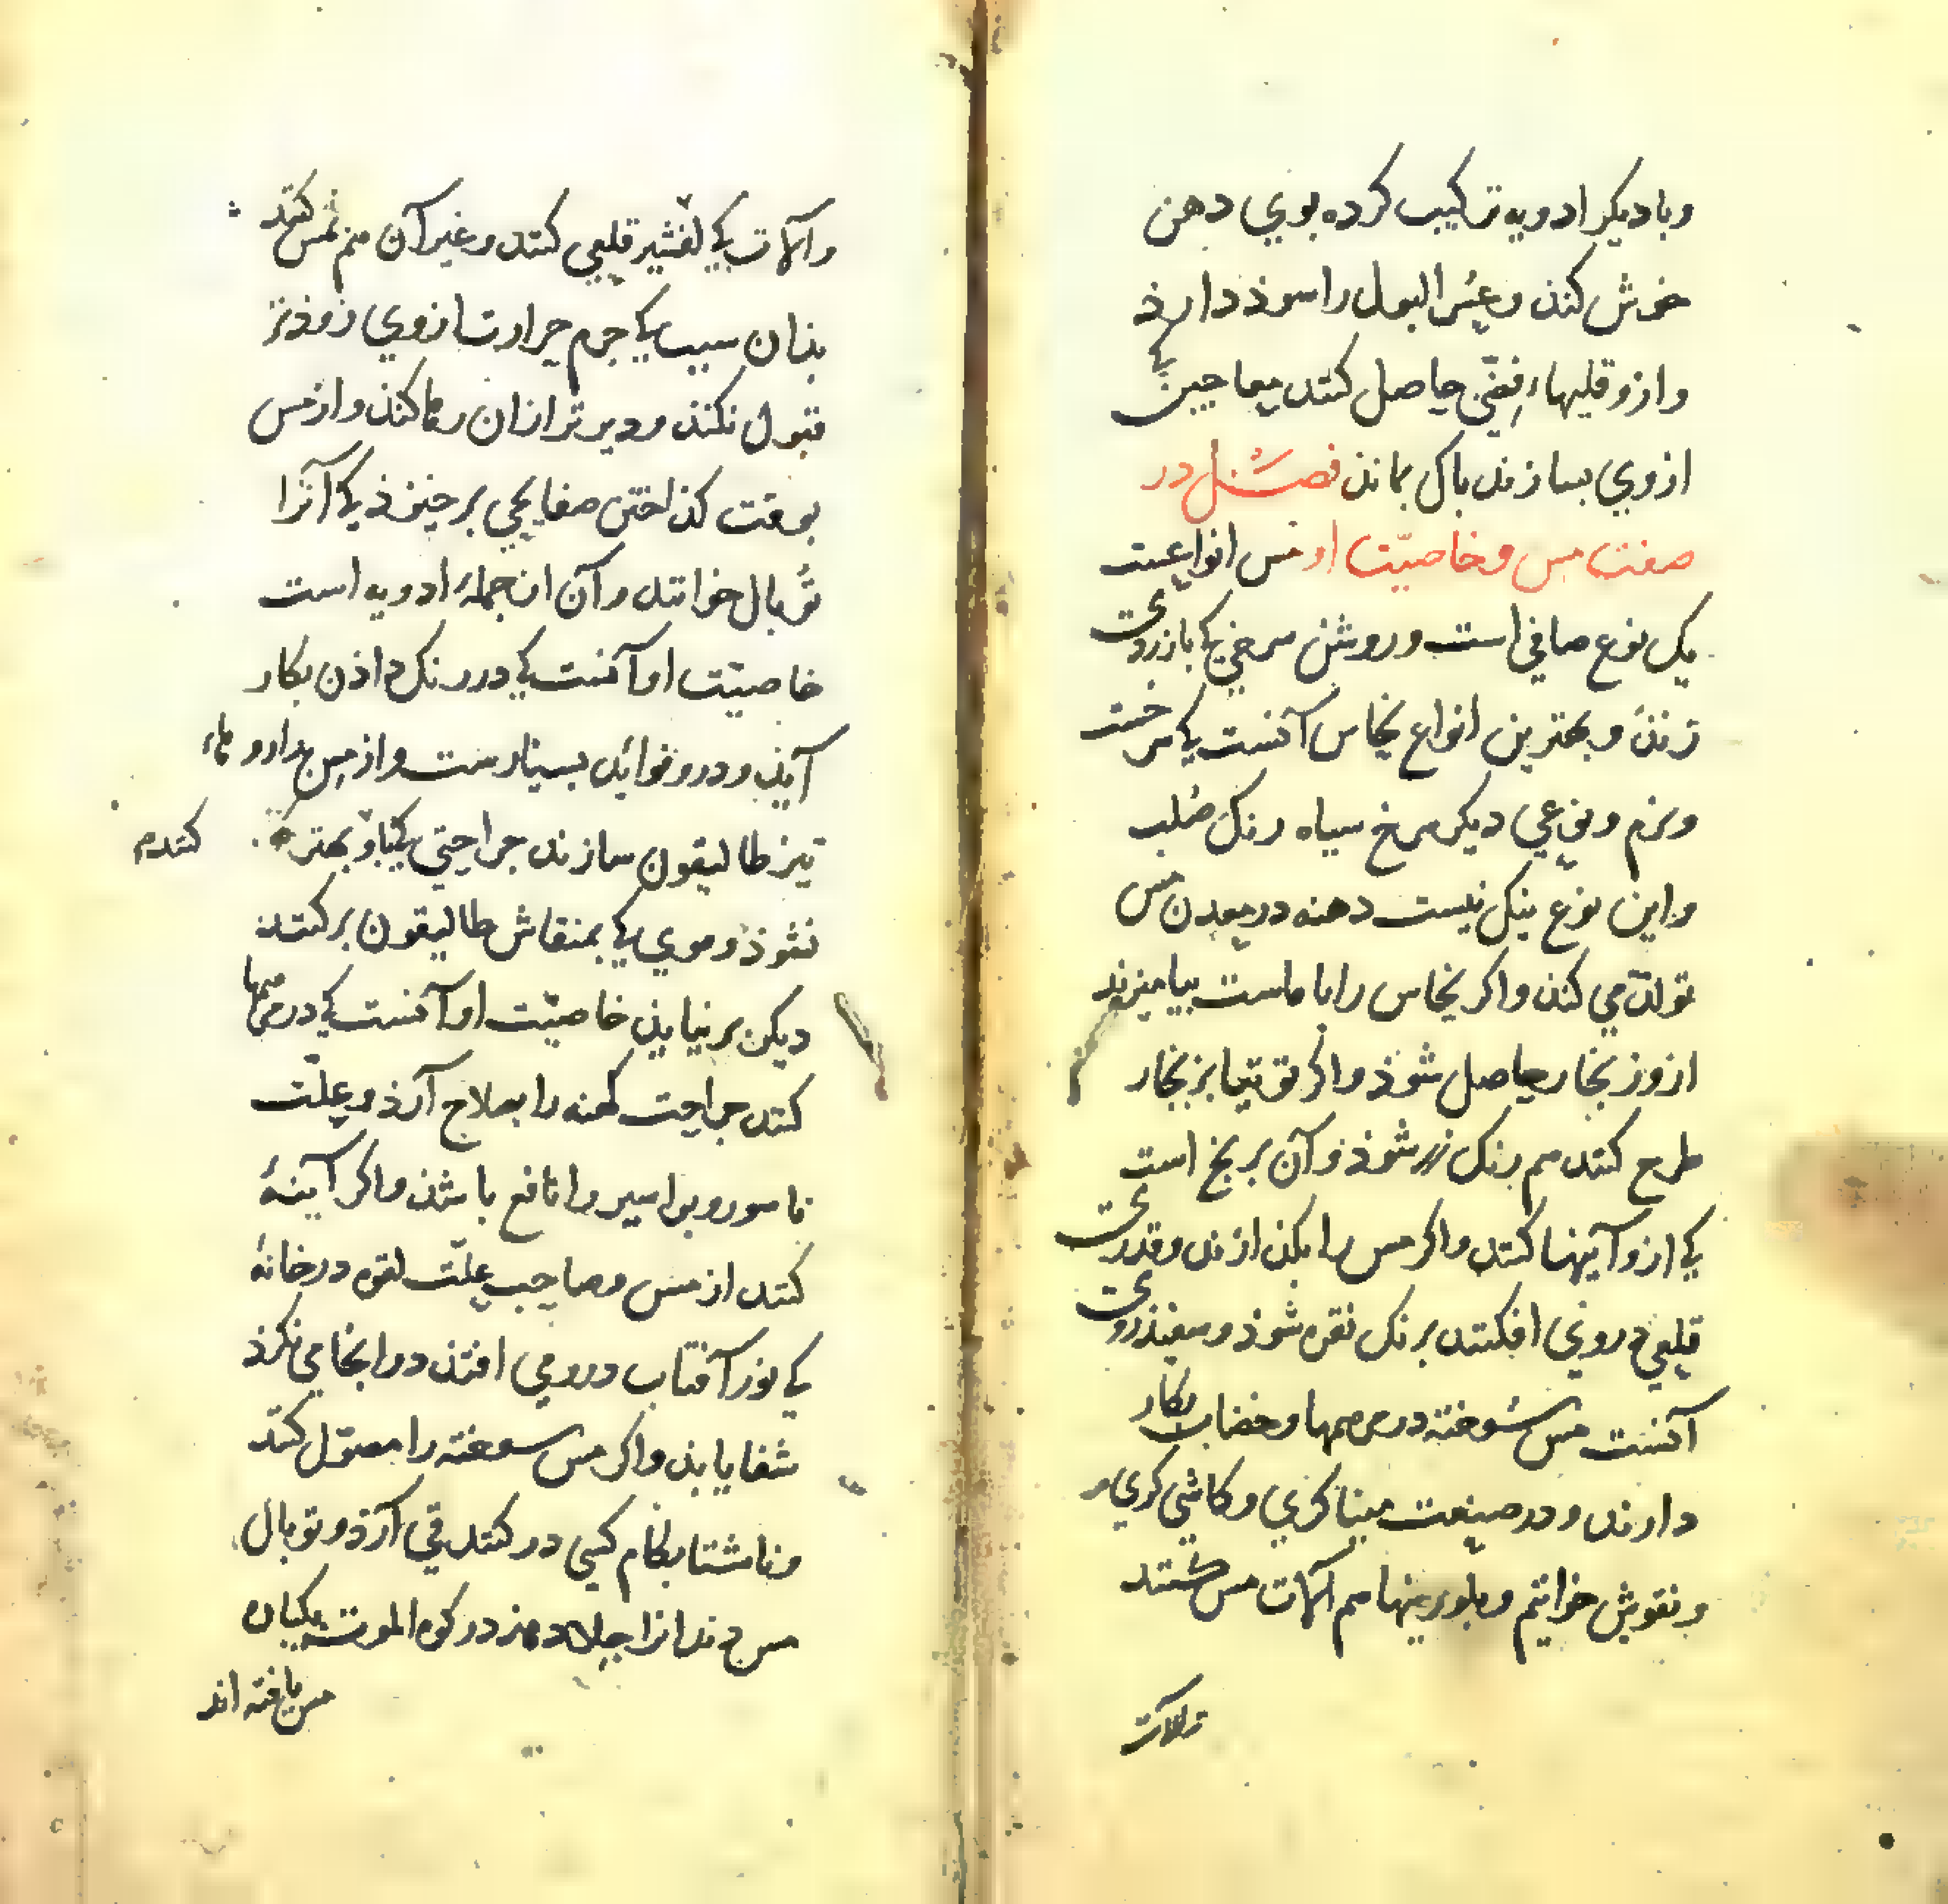 وبا دیکر ادویه ترکیب کرده بوي دهن
خوش کند وعسر البول را سوذ دارذ
وازو قلیهاء فضّی حاصل کنند معاجین کی
ازوي بسازند باک بماند فصل در
صفت مس وخاصیّت او مس انواعیست
یک نوع صافی است وروشن سرخی کی بازردی
زند وبهترین انواع نحاس آنست کی سرخست
ونرم ونوعی دیکر سرخ سیاه رنک صلب
واین نوع نیک نیست دهنه در معدن مس
تولّد می کند واکر نحاس را با ماست بیامیزند
ازو زنجار حاصل شوذ واکر توتیا بر نحاس
طرح کنند هم رنک زر شوذ وآن برنج است
کی ازو آینها کنند واکر مس را بکدازند وقدری
قلعی دروی افکنند برنک نقره شوذ وسفیذروی
آنست مس سوخته در مرهمها وخضاب بکار
دارند ودر صنعت مینا کری وکاشی کری و
ونقوش خواتیم وبلورینها هم آلات مس کنند
وآلات
وآلات کی کفشیر قلعی کنند وغیر آن هم مس کنند
بذان سبب کی جرم حرارت ازوی زوذتر
قبول نکند ودیرتر ازان رها کند واز مس
بوقت کداختن صفایحی برخیزذ کی آنرا
توبال خوانند وآن از جملهٔ ادویه است
خاصیّت او آنست کی در رنک داذن بکار
آید ودرو فواید بسیارست واز مس بداروهاء
تیز طالیقون سازند جراحتی کی باو بهتر
کنندم
نشوذ وموی کی بمنقاش طالیقون برکنند
دیکر برنیاید خاصیّت او آنست کی در مرهمها
کنند جراحت کهنه را بصلاح آرذ وعلّت
ناسور وبواسیر را نافع باشد واکر آینهٔ
کنند از مس وصاحب علّت لقوه در خانهٔ
کی نور آفتاب درو می افتد در انجا می نکرذ
شفا یابد واکر مس سوخته را معوّل کنند
وناشتا بکام کسی در کنند قی آرذ وتوبال
مس دندانرا جلا دهد در کوه الموت یکباره
مس یافته اند